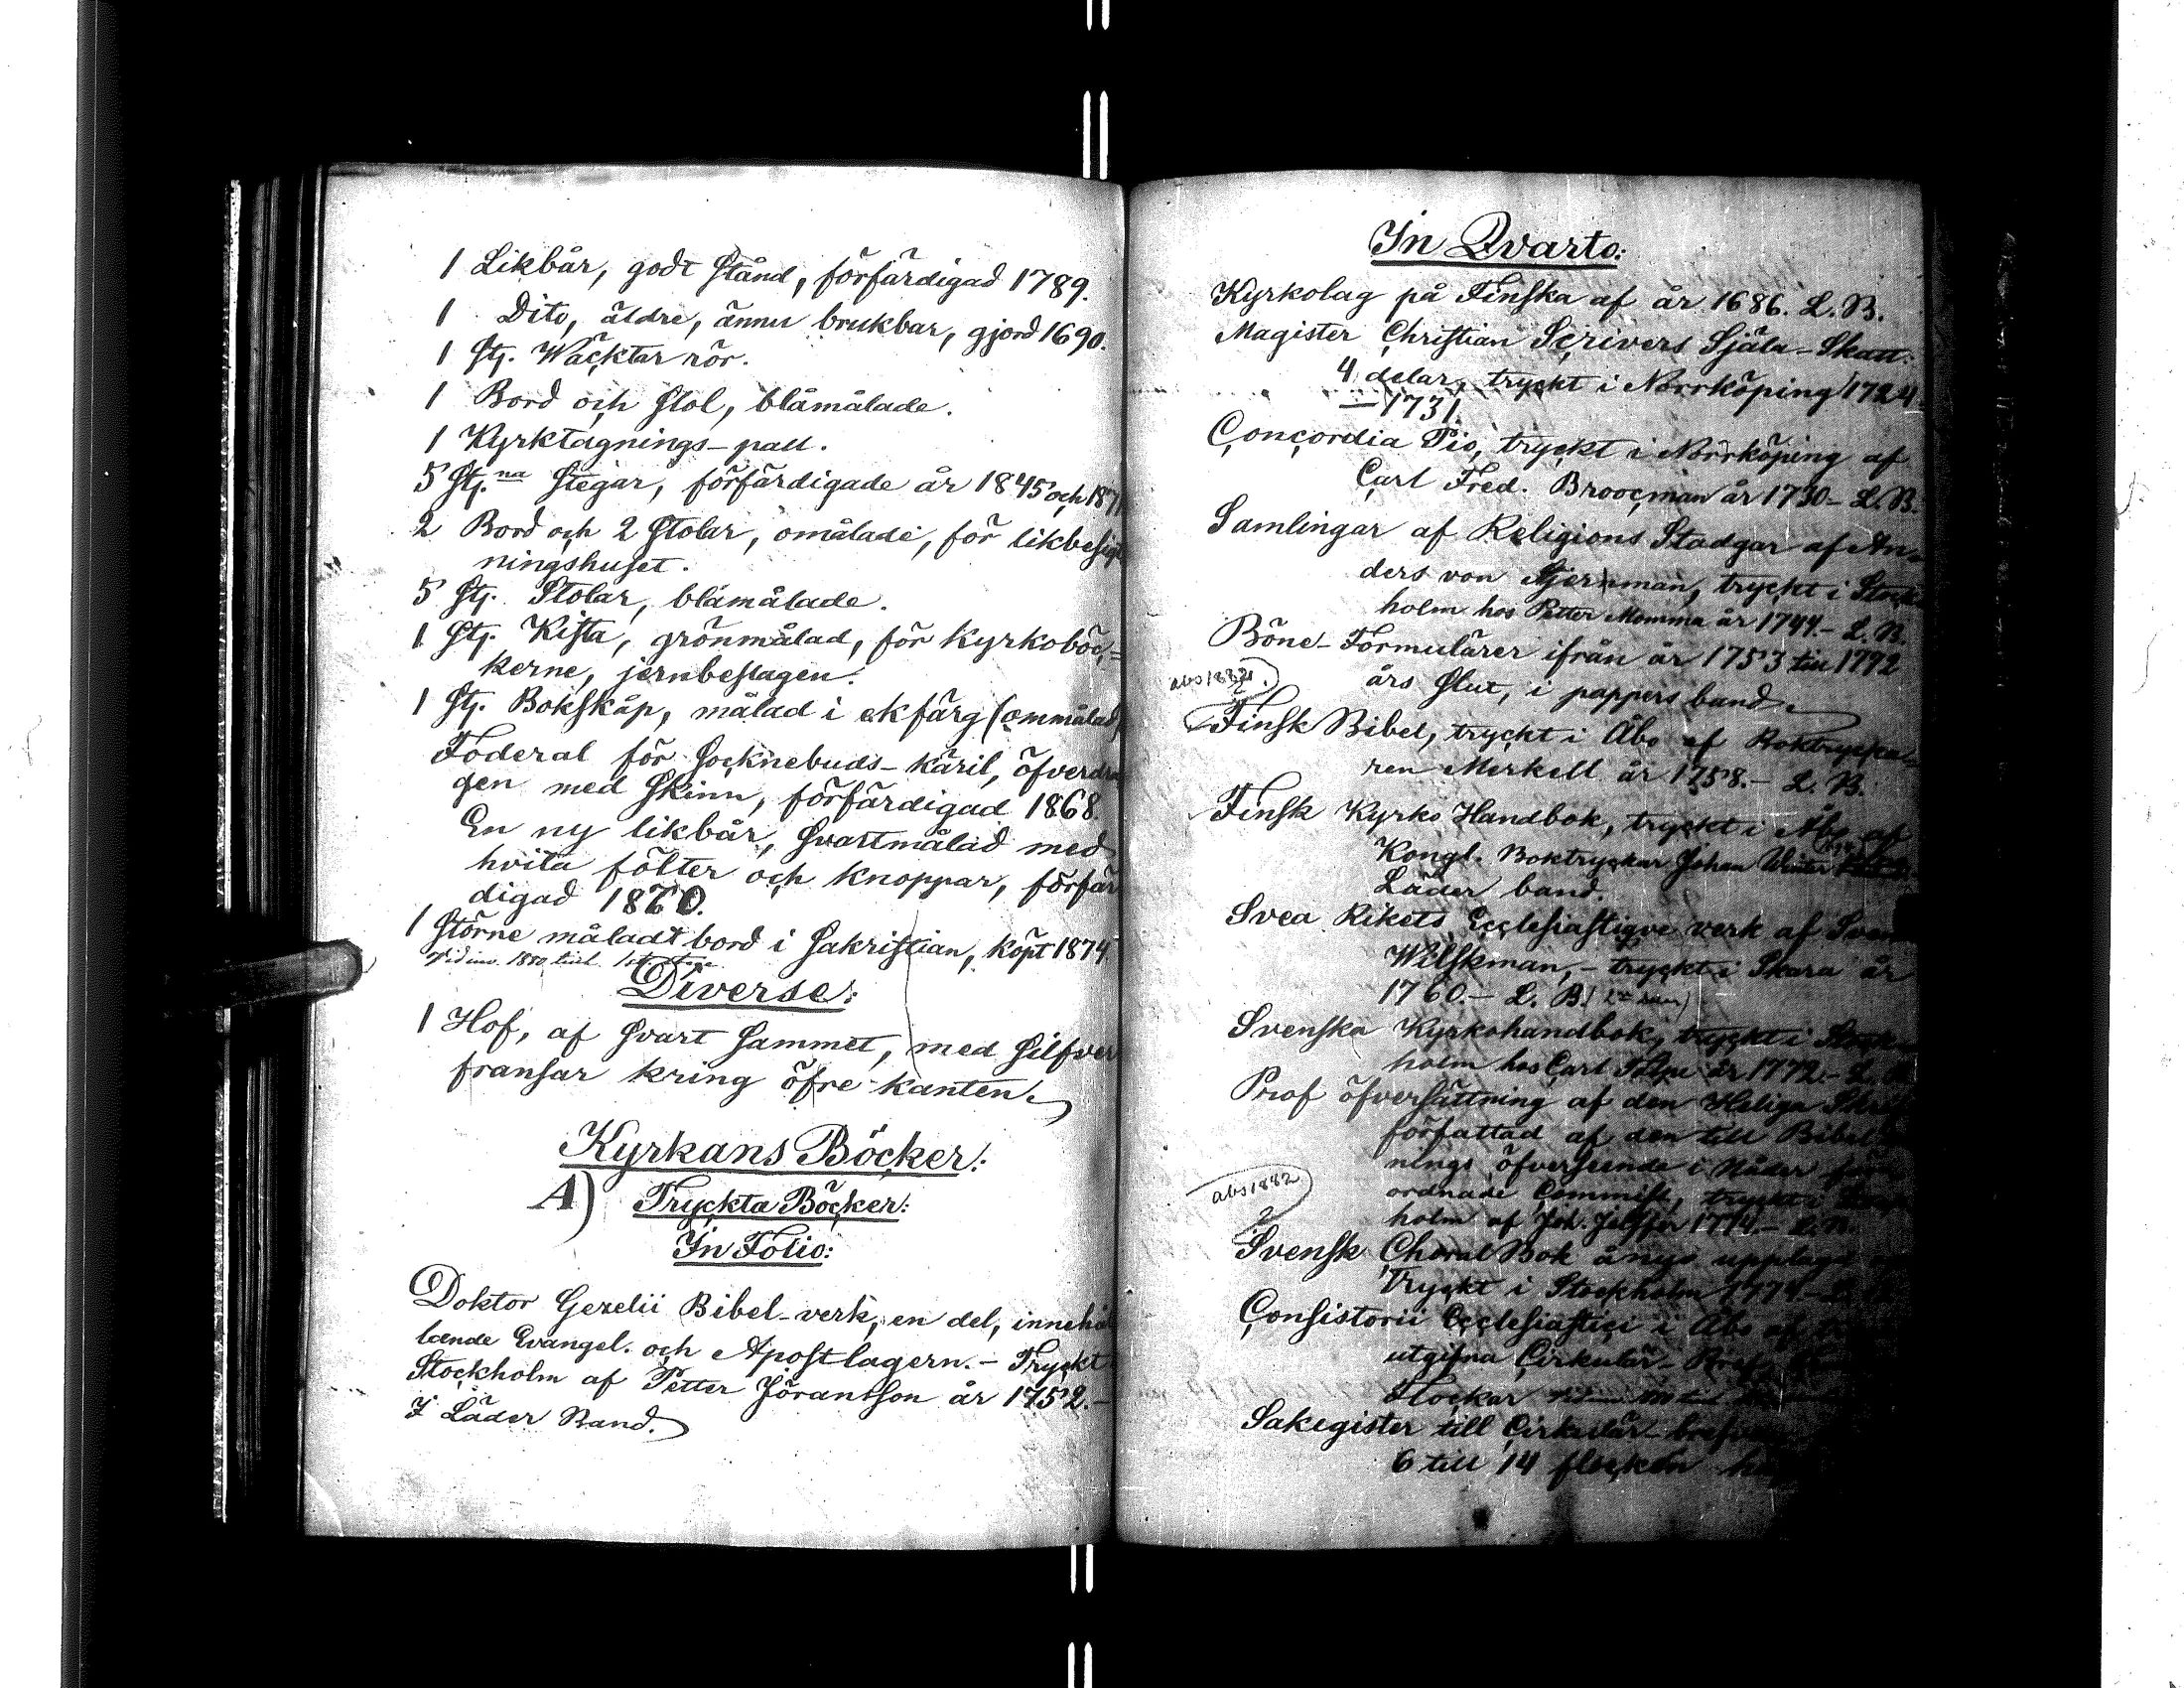 1 Likbår, godt stånd, förfärdigad 1789.
1 Dito, äldre, ännu brukbar, gjord 1690.
1 stj. Wäcktar rör.
1 Bord och stol, blåmålade.
1 Kyrktagnings-pall.
5 stj.na stegar, förfärdigade år 1845 och 1871
2 Bord och 2 stolar, omålade, för likbesig
ningshuset.
5 stj. Stolar, blåmålade.
1 stj. Kista, grönmålad, för Kyrkoböc=
kerne, jernbeslagen.
1 stj. Bokskåp, målad i ekfärg (ommålad)
Foderal för Socknebuds-käril, öfverdra
gen med skinn, förfärdigad 1868.
En ny likbår, svartmålad med
hvita fötter och knoppar, förfär
digad 1870.
1 större måladt bord i sakristian, köpt 1874.
Vid inv. 1880
Diverse:
1 Hof, af svart sammet, med silfver
fransar kring öfre kanten.
Kyrkans Böcker:
A) Tryckta Böcker:
In Folio:
Doktor Gezelii Bibel-verk, en del, innehål
lande Evangel. och Apostlagern. - Tryckt
Stockholm af Petter Jöransson år 1752.-
I Läder Band.
In Qvarto:
Kyrkolag på Finska af år 1686. L. B.
Magister Christian Scrivers Själa-Skatt.
4 delar, tryckt i Norrköping 1724
- 1731.
Concordia Pio, tryckt i Norrköping af
Carl Fred. Broocman år 1730- L. B.
Samlingar af Religions Stadgar af An=
ders von Stjernman, tryckt i Stock
holm hos Petter Momma år 1744.- L. B.
Böne-Formulärer ifrån år 1753 till 1792
års slut, i pappers band.
abs 1882
Finsk Bibel, tryckt i Åbo af Boktrycka=
ren Merkell år 1758.- L. B.
Finsk Kyrko Handbok, tryckt i Åbo af
Kongl. Boktryckar Johan Winter
Läder band.
Svea Rikets Ecclesiastiqve verk af Sven
Wilskman,- tryckt i Skara år
1760.- L. B.
Svenska Kyrkohandbok, tryckt i Stock
holm hos Carl Stolpe år 1772.- L.
Prof öfversättning af den Heliga Skrift
författad af den till Bibel
nings öfverseende i Nåder
ordnade Commiss, tryckt i
abs 1882
2
holm af Joh. 1774.- L. B.
Svensk Choral Bok ånyo upplagd
Tryckt i Stockholm 1774.- L.
Consistorii Ecclesiastici i Åbo af
utgifna Cirkulär-Bref
Flockar
Sakegister till Cirkulär-bref
6 till 14 flocken